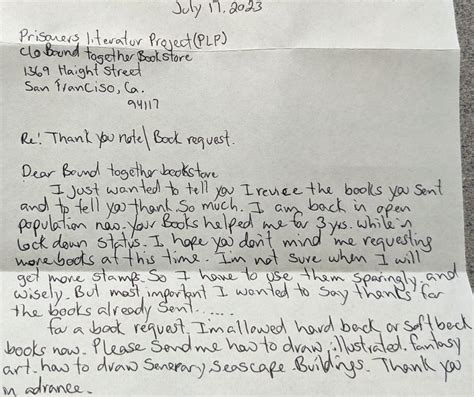 July 17, 2023
Prisoners literatur Project (PLP)
C/o Bound together Bookstore
1369 Haight Street
San Franciso, Ca.
94117
Re: Thank you note/Book request.
Dear Bound together bookstore
I just wanted to tell you I revice the books you sent
and to tell you thank so much. I am back in open
population now. Your Books helped me for 3 yrs. while in
lock down status. I hope you don't mind me requesting
more books at this time. I'm not sure when I will
get more stamps. So I have to use them sparingly and
wisely. But most important I wanted to say thanks for
the books already sent......
for a book request, I'm allowed hard back or soft back
books now. Please send me how to draw illustrated. fantasy
art. how to draw Senerary, Seascape Buildings. Thank you
in advance.